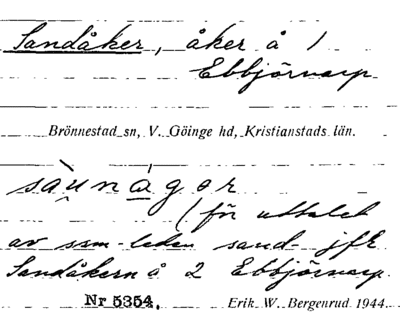 Sandåker, åker å 1
Ebbjörnarp
Brönnestad sn, V. Göinge hd, Kristianstads län.
sàu̯nágər
(för uttalet
av ssm-leden sand- jfr
Sandåkern å 2 Ebbjörnarp.
Nr 5354. Erik W. Bergenrud 1944.